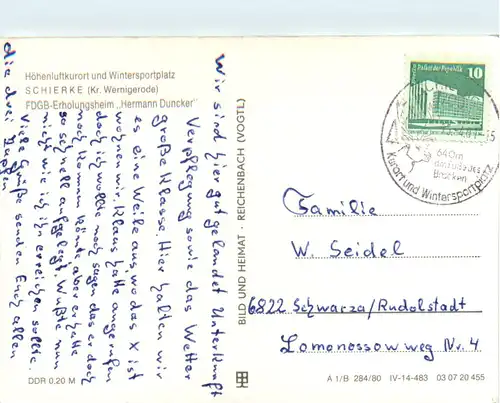 Höhenluftkurort und Wintersportplatz
SCHIERKE (Kr. Wernigerode)
FDGB-Erholungsheim „Hermann Duncker"
Wir sind hier gut gelandet Unterkunft
Verpflegung sowie das Wetter
große Klasse. Hier halten wir
es eine Weile aus wo das X ist
wohnen wir. Klaus hatte angerufen
doch ich wollte noch sagen das er doch
noch kommen könnte aber er hatte
so schnell aufgelegt. Wußte nun
nicht wie ich ihn erreichen sollte.
Viele Grüße senden Euch allen
die drei
BILD UND HEIMAT · REICHENBACH (VOGTL)
DDR 0,20 M
Palast der Republik
10
640m
Brocken
Kurort und Wintersportplatz
Familie
W. Seidel
6822 Schwarza/Rudolstadt
Lomonossowweg Nr. 4
A 1/B 284/80 IV-14-483 03 07 20 455